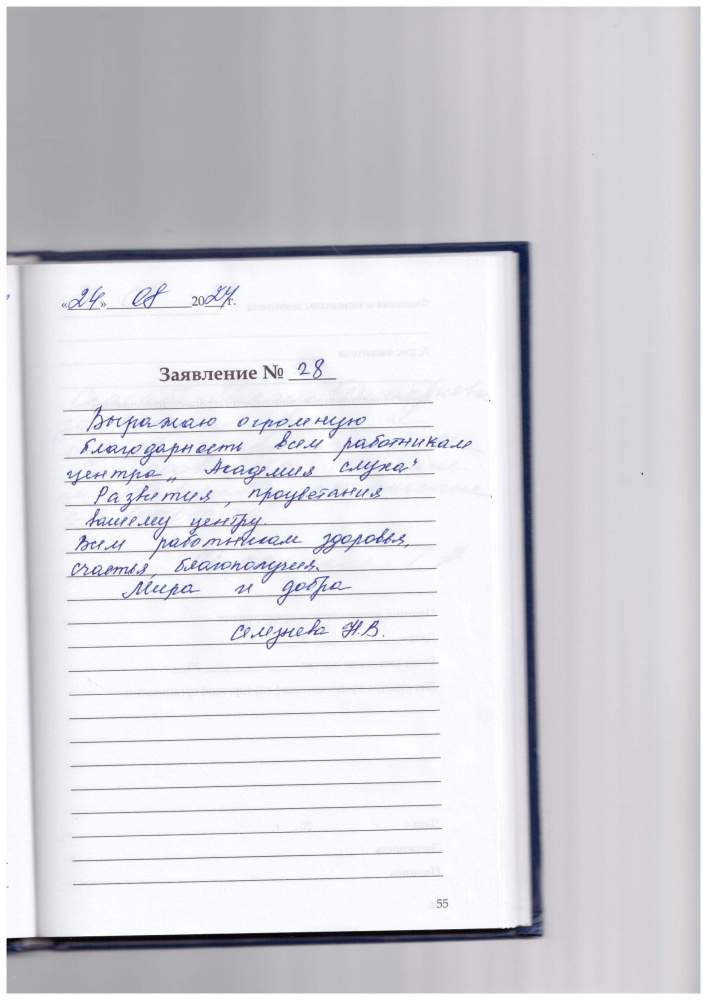 «24» 08 2024 г.
Заявление № 28
Выражаю огромную
благодарность всем работникам
центра „Академия слуха"
Развития, процветания
вашему центру.
Всем работникам здоровья,
счастья, благополучия.
Мира и добра
Селезнева Н.В.
55